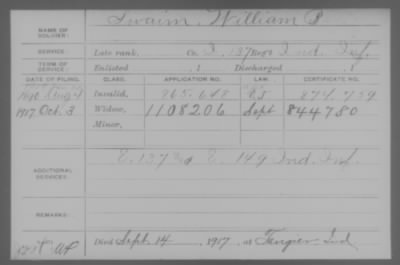 NAME OF SOLDIER: Swaim, William P
SERVICE: Late rank, Co. I, 137 Reg't Ind. Inf.
TERM OF SERVICE: Enlisted , 1 Discharged , 1
DATE OF FILING. CLASS. APPLICATION NO. LAW. CERTIFICATE NO.
1890 Aug 9 Invalid, 965.648 874.759
1917 Oct. 3 Widow, 1108206 Sept 844780
Minor,
ADDITIONAL SERVICES: E. 137 & E. 149 Ind. Inf.
REMARKS:
Died Sept. 14, 1917, at Tangier Ind